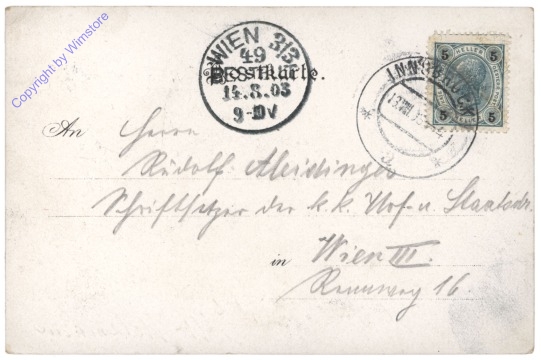 Copyright by Wimstore
WIEN 3/3
49
BESTELLT
14.8.03
9-
Postkarte.
INNSBRUCK
5 HELLER 5
5 5
An Herrn
Rudolf Meidinger
Schriftsetzer der k. k. Hof- u. Staatsdr.
in Wien III.
Rennweg 16.